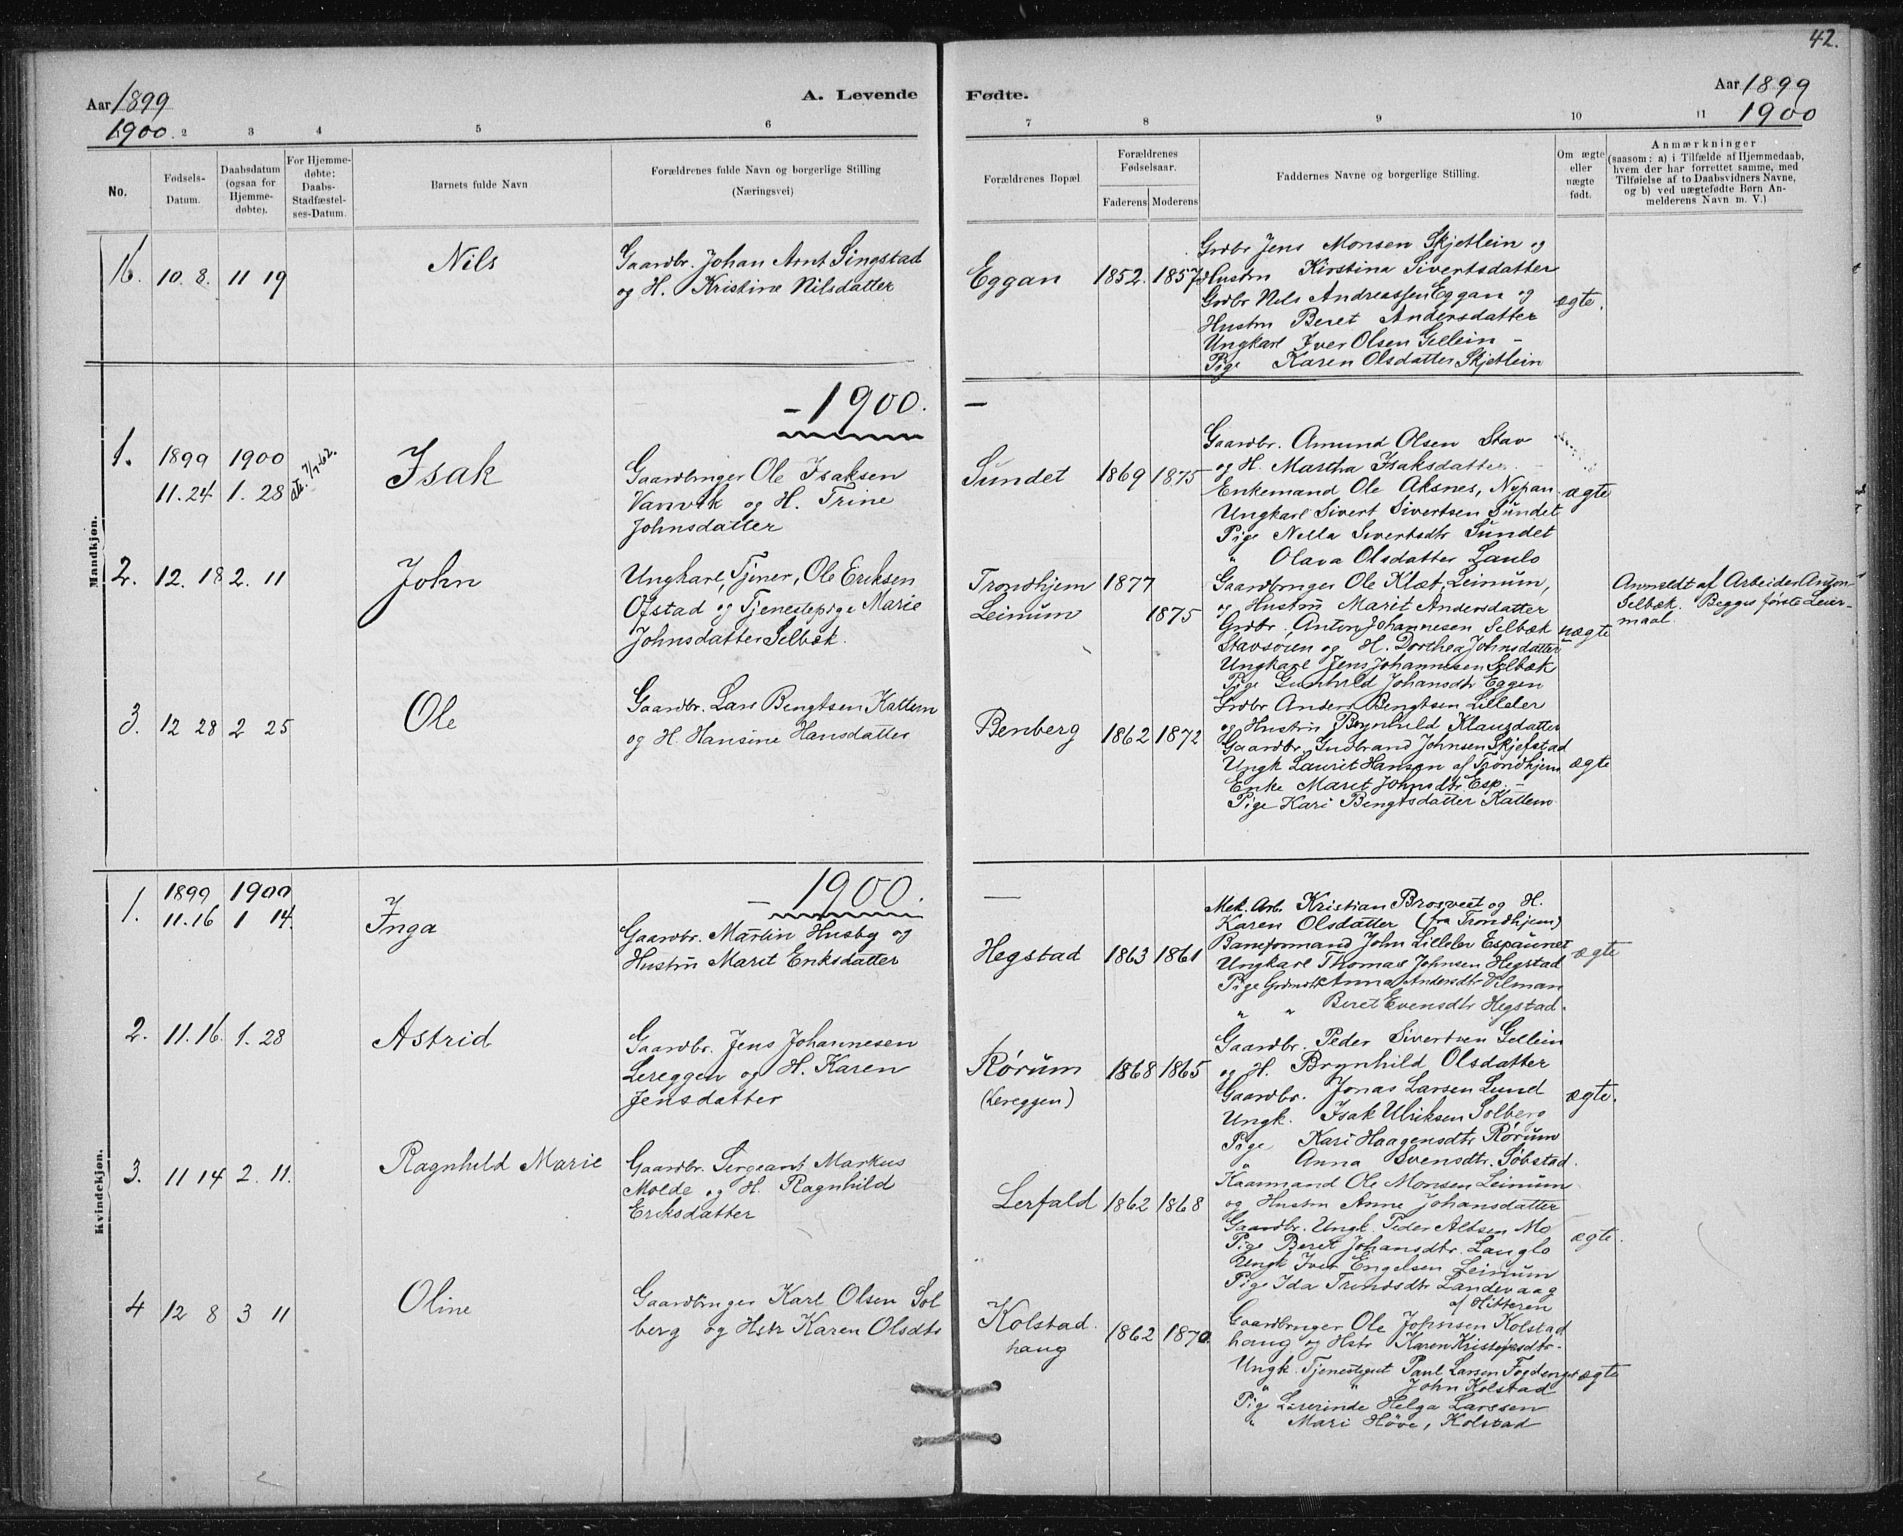 42.
Aar 1899
1900.
A. Levende
Fødte.
Aar 1899
1900
2 3 4 5 6 7 8 9 10 11
No.
Fødsels-
Datum.
Daabsdatum
(ogsaa for
Hjemme-
døbte).
For Hjemme-
døbte:
Daabs-
Stadfæstel-
ses-Datum.
Barnets fulde Navn
Forældrenes fulde Navn og borgerlige Stilling
(Næringsvei)
Forældrenes Bopæl.
Forældrenes
Fødselsaar.
Faderens Moderens
Faddernes Navne og borgerlige Stilling.
Om ægte
eller
uægte
født.
Anmærkninger
(saasom: a) i Tilfælde af Hjemmedaab,
hvem der har forrettet samme, med
Tilføielse af to Daabsvidners Navne,
og b) ved uægtefødte Børn An-
melderens Navn m. V.)
16. 10. 8. 11 19
Nils
Gaardbr. Johan Arnt Singstad
og H. Kristine Nilsdatter
Eggan
1852. 1857
Grdbr Jens Monsen Skjetlein og
Hustru Kirstina Sivertsdatter
Grdbr Nils Andreassen Eggan og
Hustru Beret Andersdatter
Ungkarl Iver Olsen Gellein –
Pige Karen Olsdatter Skjetlein
ægte.
Mandkjøn.
– 1900.
–
1.
1899 1900
11.24 1. 28
Isak
Gaardbruger Ole Isaksen
Vanvik og H. Trine
Johnsdatter
Sundet
1869 1875
Gaardbr. Amund Olsen Stav
og H. Martha Isaksdatter
Enkemand Ole Aksnes, Nypan
Ungkarl Sivert Sivertsen Sundet
Pige Nella Sivertsdtr Sundet
" Olava Olsdatter Laulo
ægte
2. 12. 18 2. 11
John
Ungkarl, Tjener, Ole Eriksen
Ofstad og Tjenestepige Marie
Johnsdatter Selbæk.
Trondhjem
Leinum
1877
1875
Gaardbruger Ole Klæt, Leinum,
og Hustru Marit Andersdatter
Grdbr. Anton Johannesen Selbæk
Stavsøien og H. Dorthea Johnsdatter
Ungkarl Jens Johannesen Selbæk
Pige Gunhild Johansdtr Eggen
uægte
Anmeldt af Arbeider Anton
Selbæk. Begges første Leier-
maal.
3. 12 28 2 25
Ole
Gaardbr. Lars Bengtsen Kattem
og H. Hansine Hansdatter
Benberg
1862 1872
Grdbr Anders Bengtsen Lilleler
og Hustru Brynhild Klausdatter
Gaardbr. Gudbrand Johnsen Skjefstad
Ungk Laurit Hansen af Trondhjem
Enke Maret Johnsdtr Esp. –
Pige Kari Bengtsdatter Kattem
ægte
Kvindekjøn.
– 1900.
–
1.
1899 1900
11.16 1 14.
Inga
Gaardbr. Martin Husby og
Hustru Marit Eriksdatter
Hegstad
1863 1861
Mek. Arb. Kristian Brosveet og H.
Karen Olsdatter (fra Trondhjem)
Baneformand John Lilleler Espaunet
Ungkarl Thomas Johnsen Hegstad
Pige Anna Andersdtr
" " Beret Evensdtr Hegstad.
ægte
2. 11.16. 1. 28
Astrid
Gaardbr. Jens Johannesen
Lereggen og H. Karen
Jensdatter
Rørum
(Lereggen)
1868 1865
Gaardbr. Peder Sivertsen Gellein
og H. Brynhild Olsdatter
Gaardbr. Jonas Larsen Lund
Ungk. Isak Ulriksen Solberg
Pige Kari Haagensdtr Rørum
" Anna Svensdtr. Søbstad.
ægte.
3. 11 14 2. 11.
Ragnhild Marie
Gaardbr. Sergeant Markus
Molde og H. Ragnhild
Eriksdatter
Lerfald
1862 1868
Kaarmand Ole Monsen Leinum
og Hustru Anne Johansdatter
Gaardbr. Ungk. Peder Altsen Mo
Pige Beret Johansdtr. Langlo
Ungk Iver Engelsen Leinum
Pige Ida Trondsdtr Landevaag
af Hitteren
ægte.
4 12 8 3 11
Oline
Gaardbruger Karl Olsen Sol
berg og Hstr Karen Olsdtr
Kolstad.
haug
1862 1870.
Gaardbruger Ole Johnsen Kolstad
haug og Hstr Karen Kristofersdtr.
Ungk. Tjenestegut Paul Larsen
" " John Kolstad
Pige Lærerinde Helga Larssen
" Mari Høve, Kolstad
ægte